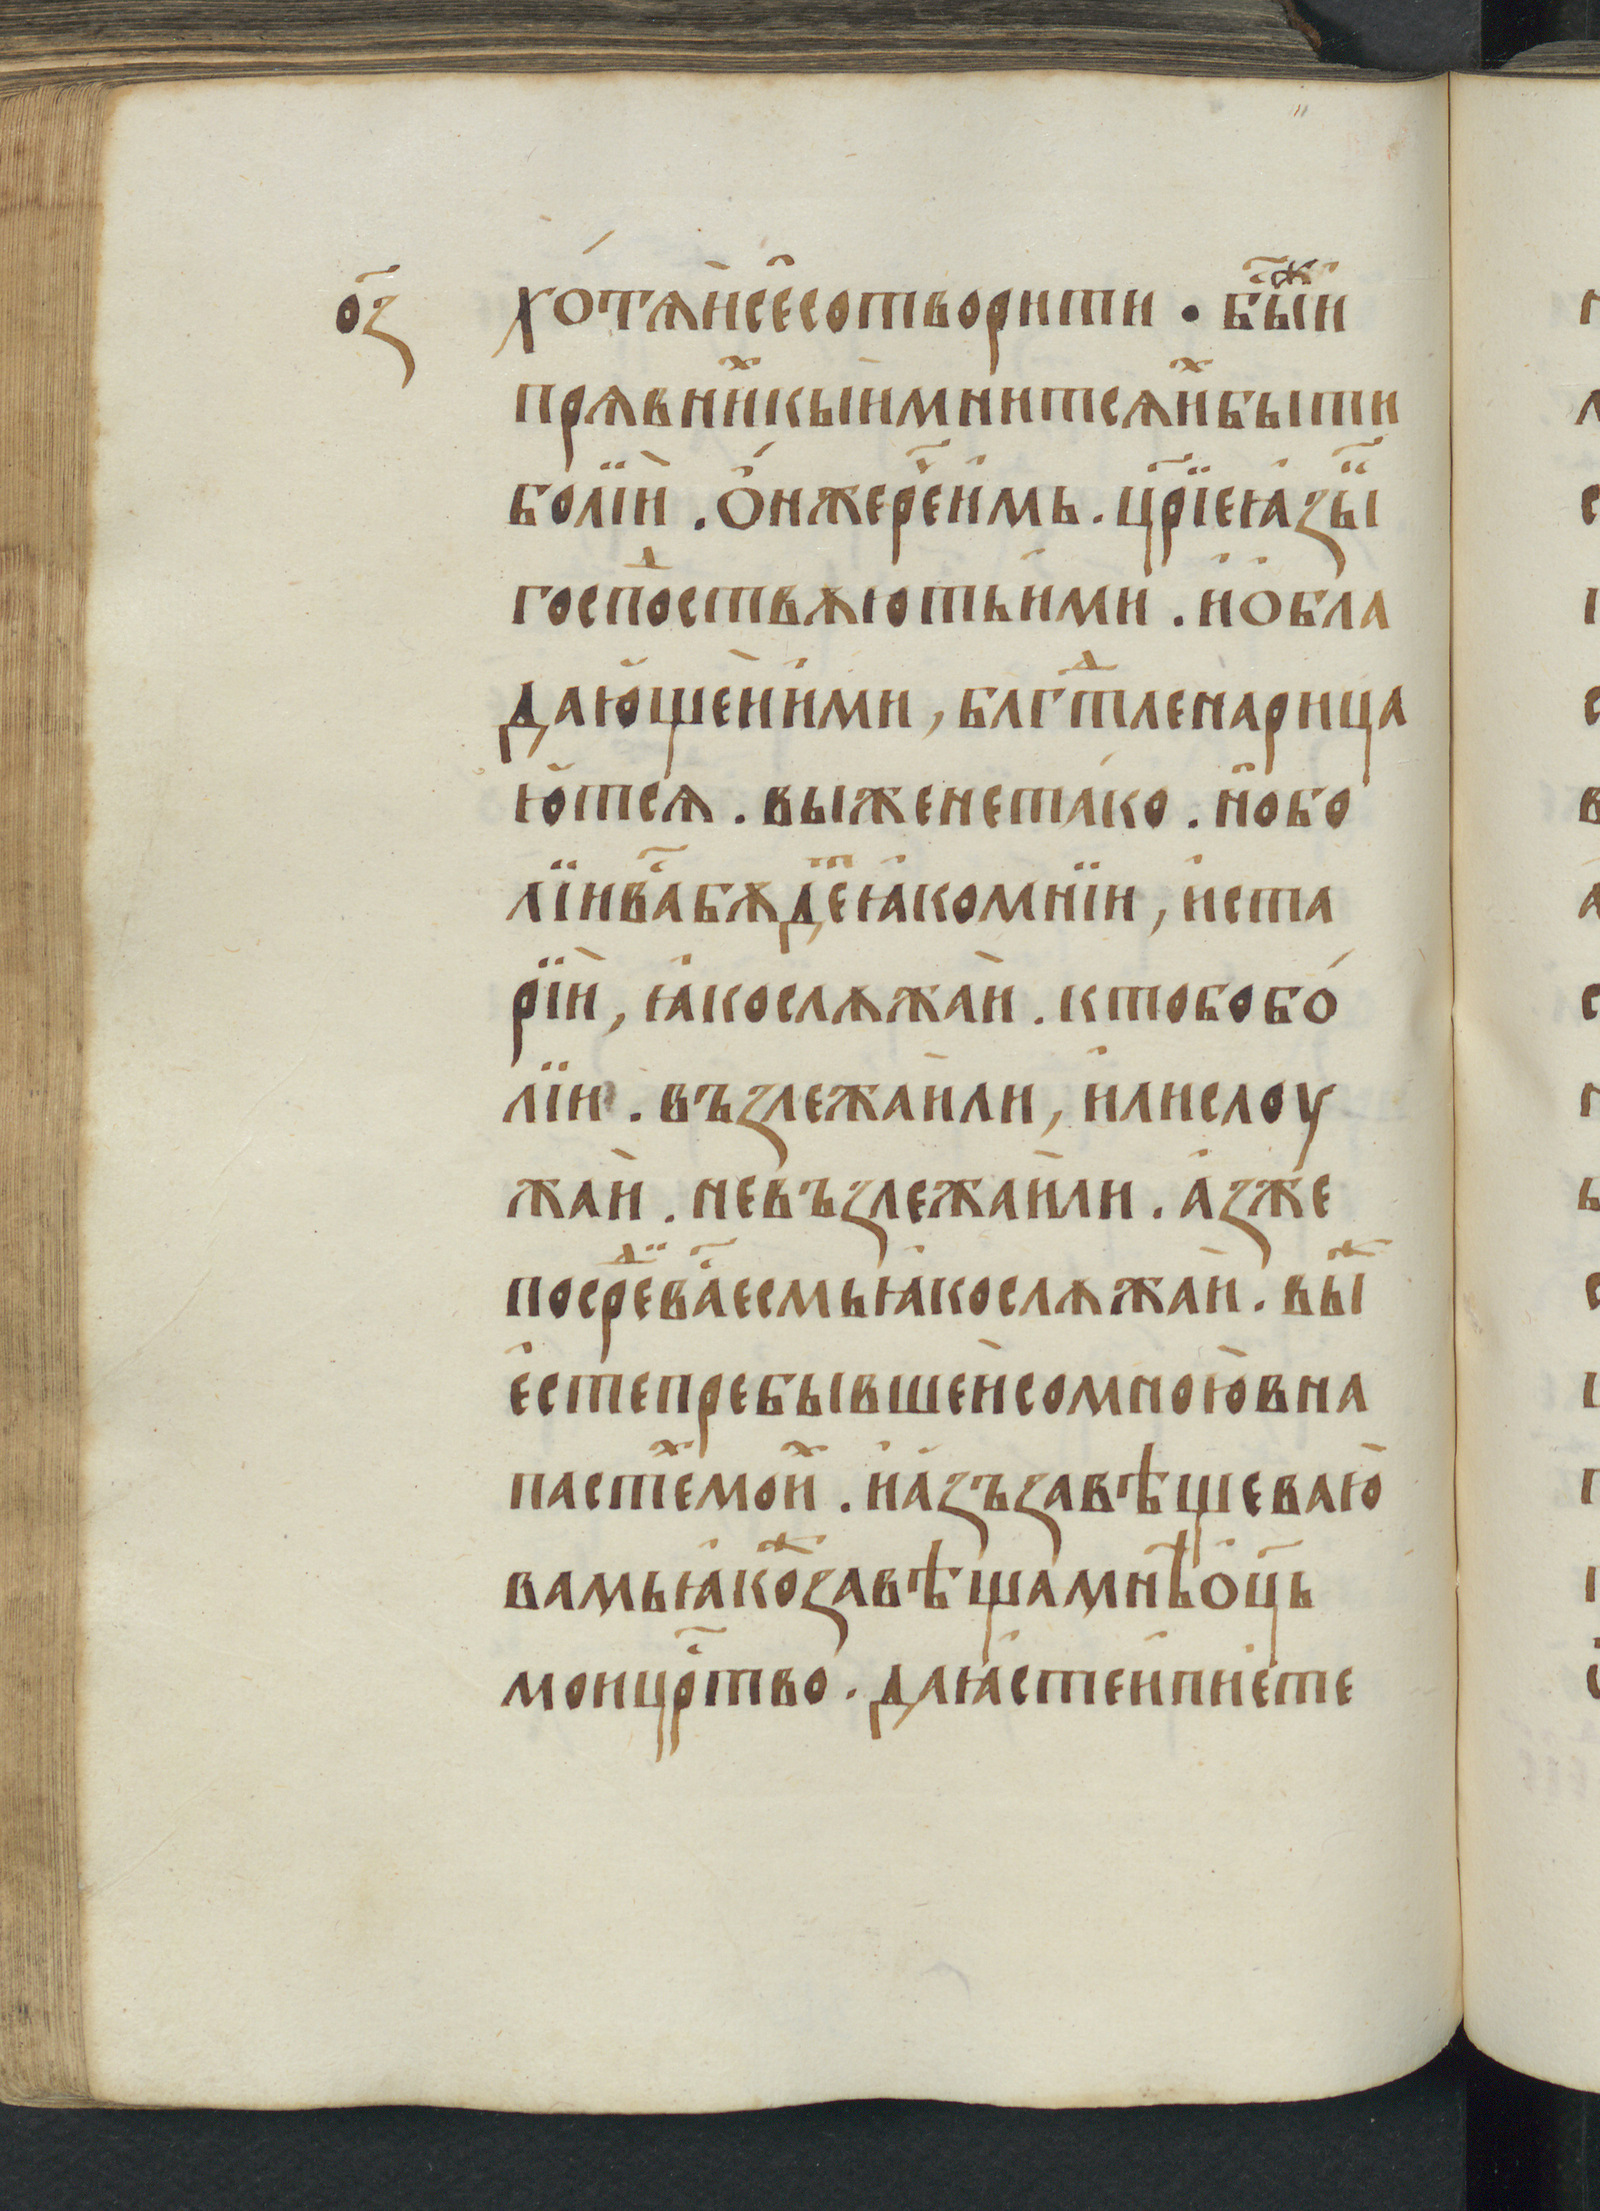 о҃з хотѧи се сотворити · бы҃ж и
прѧ в ни̾х кыи мнитсѧ и̾х быти
болїи . Онже рече҃ имь . цр҃їе ꙗзы҃
госпоⷣствѫють ими . и обла
дающеи ими , блгⷣтле нарица
ютсѧ . вы же не тако . но бо
лїи в ва҃ бѫдеⷮ ꙗко мнїи , и ста
рїи , ꙗко слѫжаи . кто бо бо́
лїи . възлежаи ли , или слоу
жаи . не възлежаи ли . аз же
посреⷣ ва҃ есмь ꙗко слѫжаи . выⷤ
есте пребывшеи со мною в на
пастеⷯ моиⷯ . и азъ завѣщеваю
вамь ꙗкоⷤ завѣща мнѣ оц҃ь
мои цр҃тво . да ꙗсте и пиете